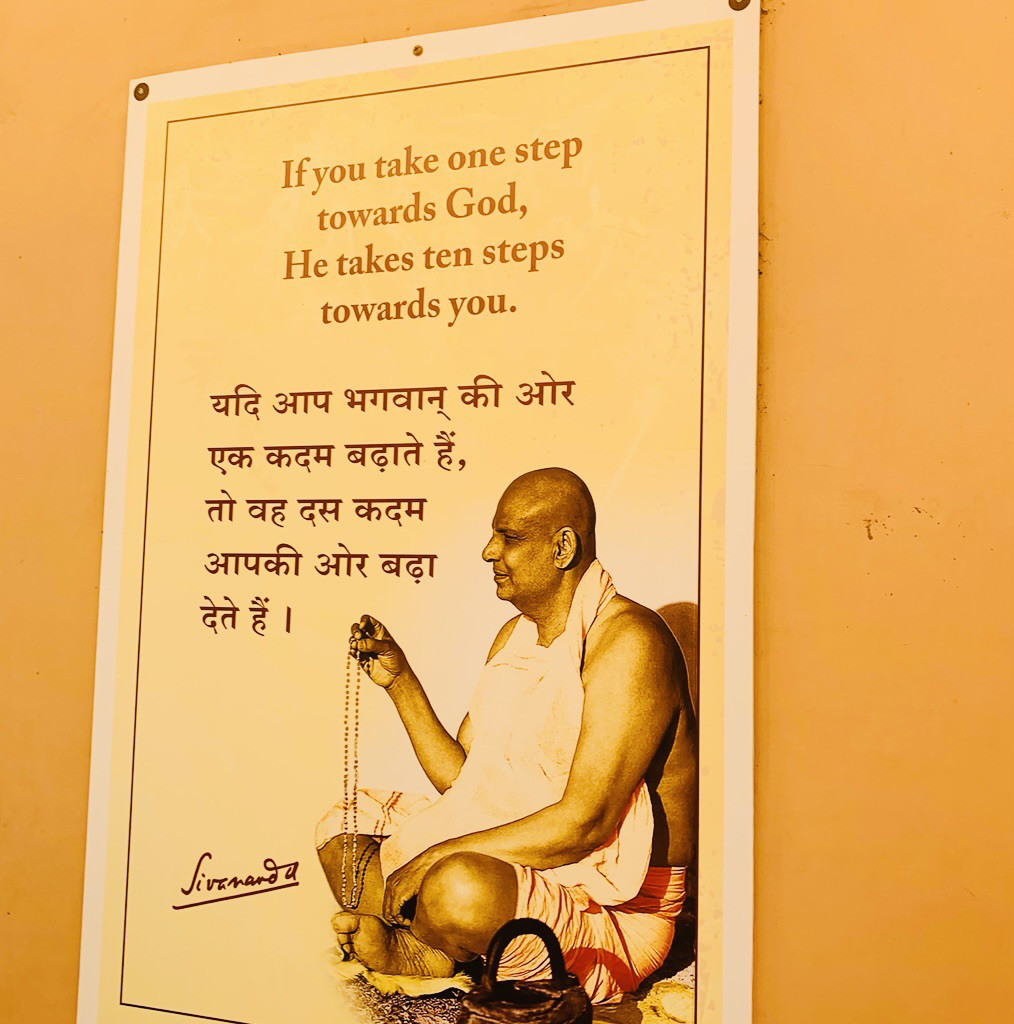 If you take one step
towards God,
He takes ten steps
towards you.
यदि आप भगवान् की ओर
एक कदम बढ़ाते हैं,
तो वह दस कदम
आपकी ओर बढ़ा
देते हैं ।
Sivananda